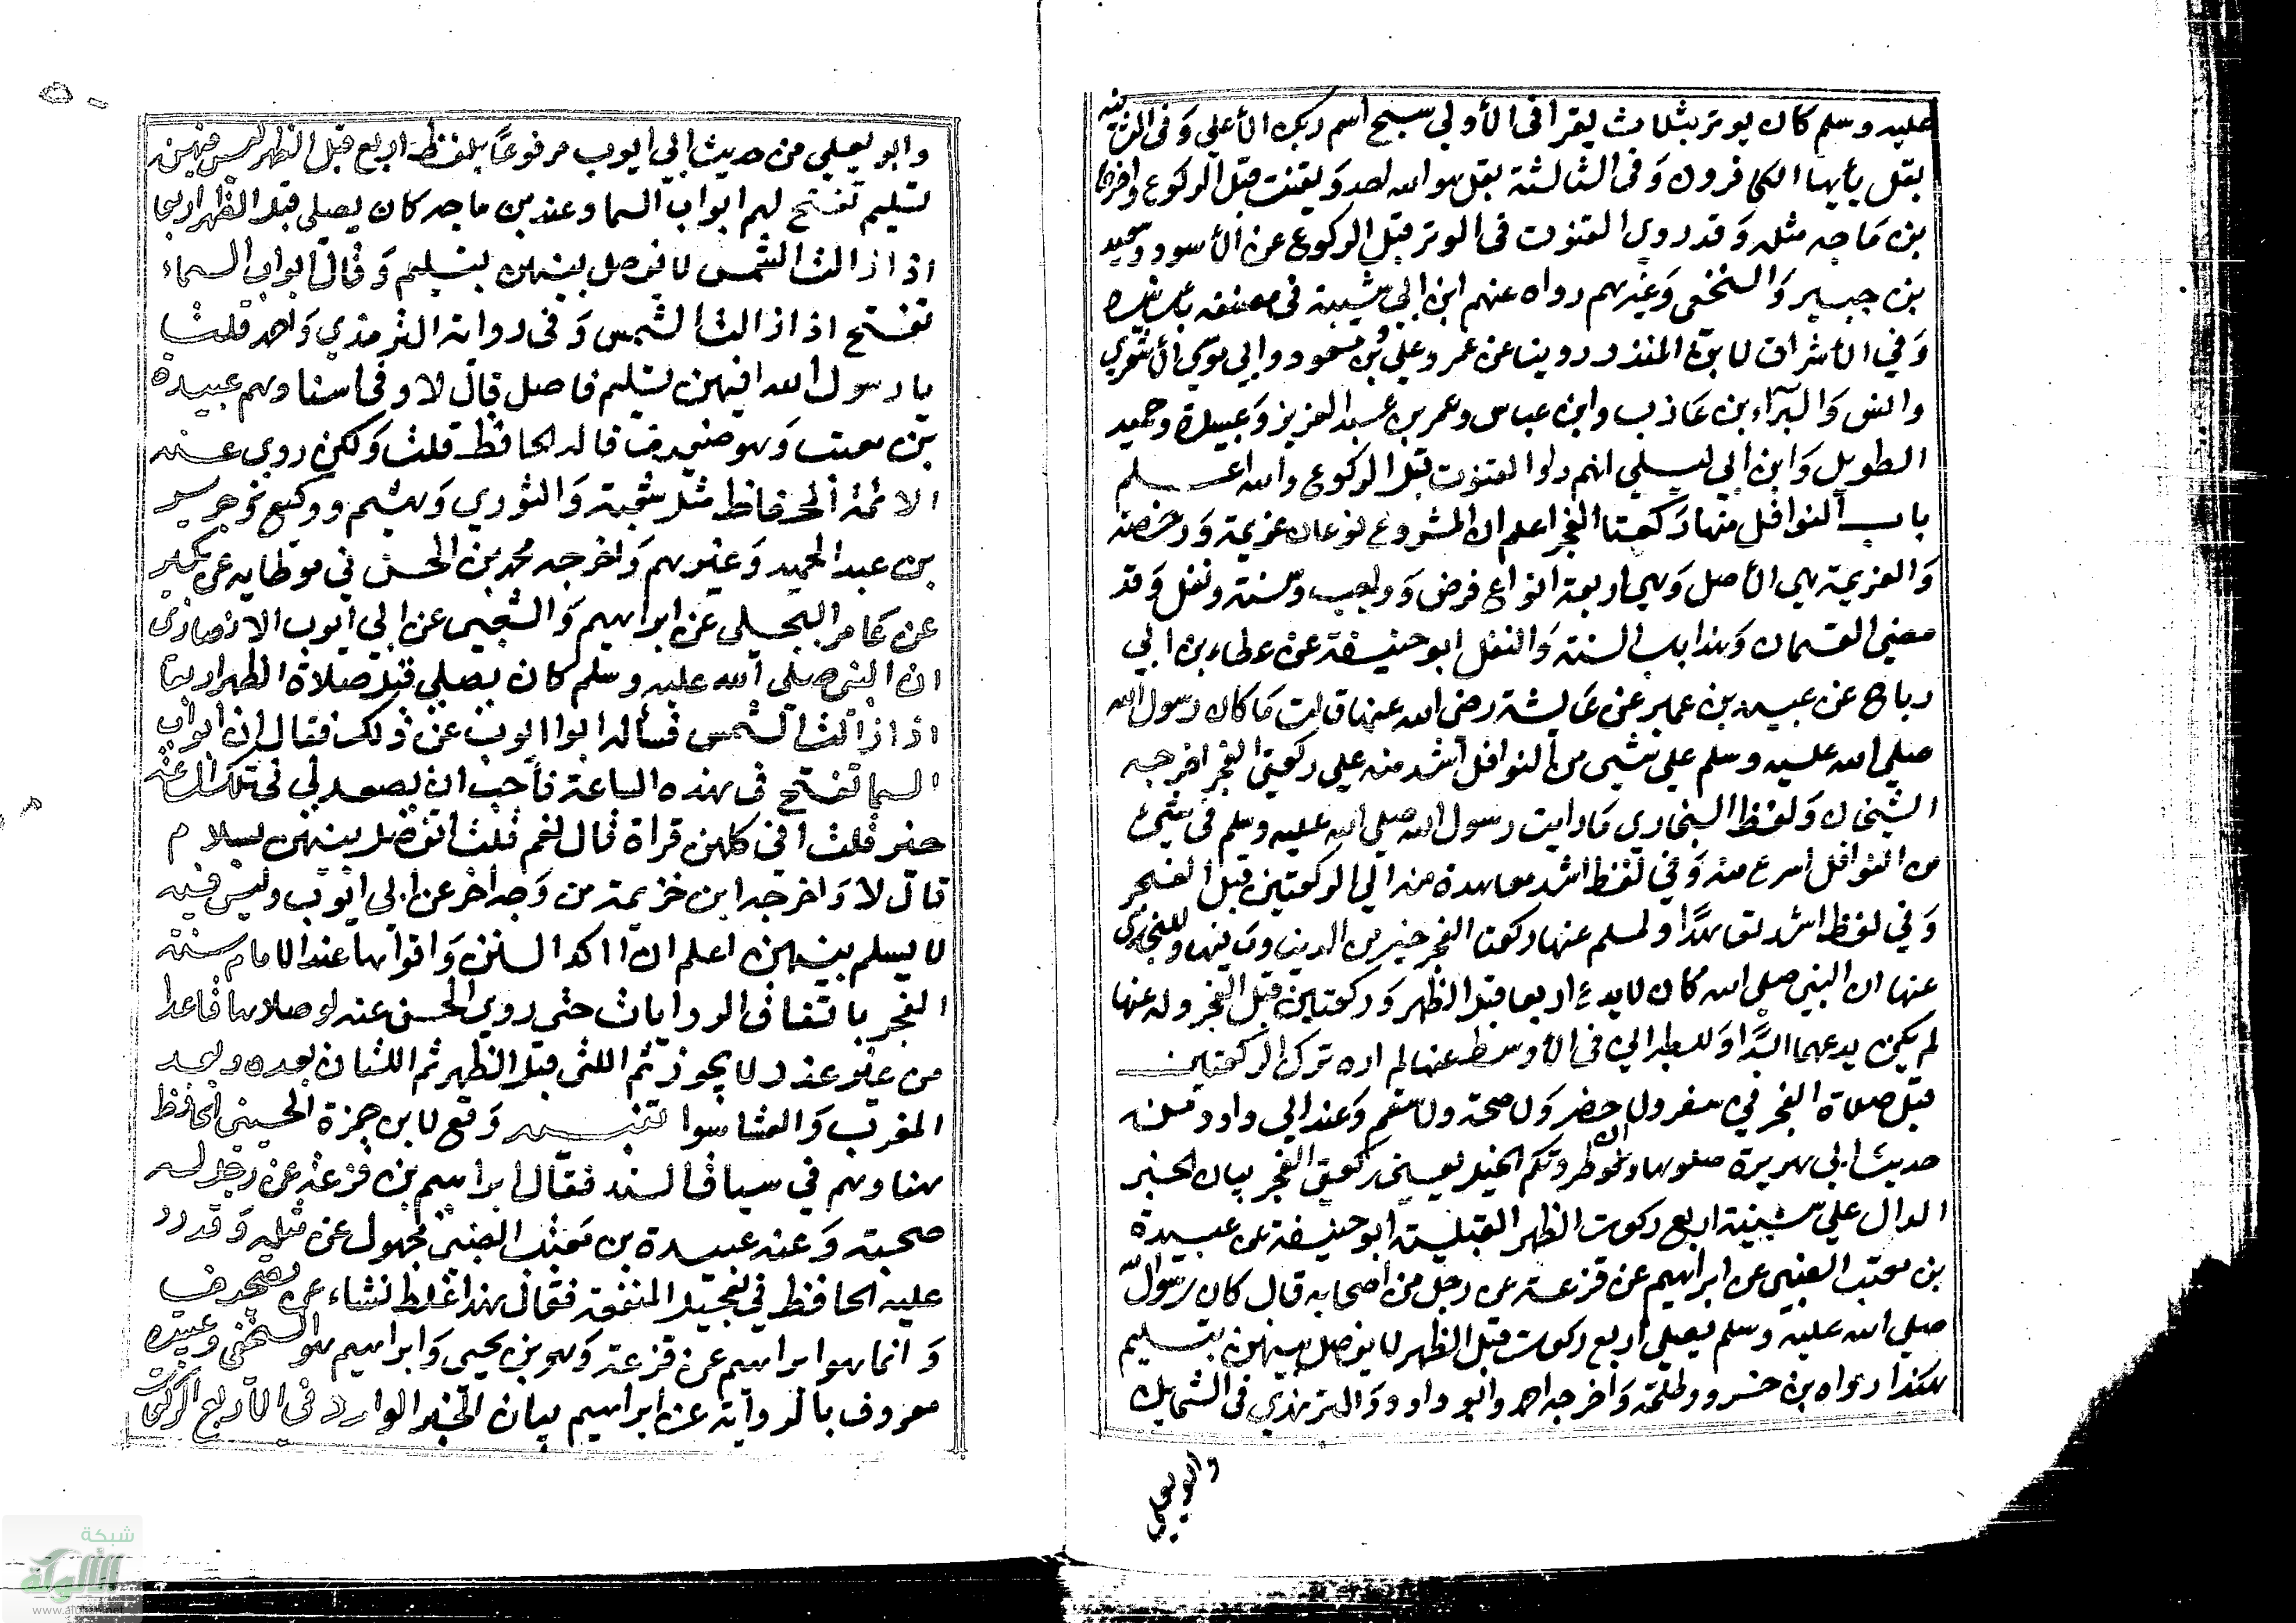 عليه وسلم كان يوتر بثلاث يقرا في الأولي سبح اسم ربك الأعلي وَفي الثانية
بقل يأيها الكافرون وَفي الثالثة بقل هو الله احد وَيقنت قبل الركوع واخرجه
بن مَاجه مثله وَقد روي القنوت في الوتر قبل الركوع عن الأسود وسعيد
بن جبير وَالنخعي وَغيرهم رواه عنهم ابن ابي شيبة في مصنفه بأسانيده
وَفي الأشراف لابن المنذر روينا عن عمر وعلي وبن مسعود وابي موسي الأشعري
وانس وَالبرَآء بن عَازب وابن عباس وعمر بن عبد العزيز وَعبيدة وحميد
الطويل وَابن أبي ليلي انهم راوا القنوت قبل الركوع والله اعلم
باب النوافل منها رَكعتا الفجر اعلم ان المشروع نوعان عزيمة وَرخصة
وَالعزيمة هي الأصل وَهي اربعة انواع فرض وَواجب وسنة ونفل وَقد
مضي القسمان وَهذا باب السنة وَالنفل ابو حنيفة عن عطاء بن ابي
رباح عن عبيد بن عمير عن عَايشة رضي الله عنها قالت مَا كان رسول الله
صلي الله عليه وسلم علي شيى من النوافل أشد منه علي ركعتي الفجر اخرجه
الشيخان وَلفظ البخاري مَا رايت رسول الله صلي الله عليه وسلم في شيئ
من النوافل اسرع منه وَفي لفظ اشد معاهدة منه الي الركعتين قبل الفجر
وَفي لفظ اشد تعاهدًا ولمسلم عنها ركعتا الفجر خير من الدنيا ومَا فيها وللبخاري
عنها ان النبي صلي الله كان لا يدع اربعا قبل الظهر وَركعتين قبل الفجر وله عنها
لم يكن يدعهما ابدًا وَللطبراني في الأوسط عنها لم اره ترك الركعتين
قبل صلاة الفجر في سفر ولا حضر وَلا صحة ولا سقم وَعند ابي داود من
حديث ابي هريرة صلوها ولو طردتكم الخيل يعني ركعتي الفجر بيان الخبر
الدال علي سنية اربع ركعات الظهر القبلية ابو حنيفة عن عبيدة
بن معتب الضبي عن ابراهيم عن قزعة عن رجل من اصحابه قال كان رسول الله
صلي الله عليه وسلم يصلي أربع ركعات قبل الظهر لا يفصل بينهن بتسليم
هكذا رواه بن خسرو وطلحة وَاخرجه احمد وابو داود وَالترمذي في الشمايل
وابو يعلي
وابو يعلي من حديث ابي ايوب مرفوعًا بلفظ اربع قبل الظهر ليس فيهن
تسليم تفتح لهم ابواب السما وعند بن ماجه كان يصلي قبل الظهر اربعا
اذا زالت الشمس لا يفصل بينهن بتسليم وَقال ابواب السماء
تفتح اذا زالت الشمس وَفي رواية الترمذي وَاحمد قلت
يا رسول الله افيهن تسليم فاصل قال لا وفي اسنادهم عبيدة
بن معتب وَهو ضعيف قاله الحافظ قلت وَلكن روي عنه
الائمة الحفاظ مثل شعبة وَالثوري وَهشيم ووكيع وَجرير
بن عبد الحميد وَغيرهم وَاخرجه محمد بن الحسن في موطايه عن بكير
عن عَامر البجلي عن ابراهيم وَالشعبي عن ابي ايوب الانصاري
ان النبي صلي الله عليه وسلم كان يصلي قبل صلاة الظهر اربعا
اذا زالت الشمس فسأله ابوا ايوب عن ذلك فقال ان ابواب
السما تفتح في هذه الساعة فأحب ان يصعد لي في تلك الساعة
خير قلت افي كلهن قراة قال نعم قلت اتفصل بينهن بسلام
قال لا وَاخرجه ابن خزيمة من وَجه اخر عن ابي ايوب وليس فيه
لا يسلم بينهن اعلم ان اكد السنن وَاقواها عند الامام سنة
الفجر باتفاق الروايات حتى روي الحسن عنه لو صلاها قاعدا
من غير عذر لا يجوز ثم اللتي قبل الظهر ثم اللتان بعده وبعد
المغرب وَالعشا سوا تنبيه وَقع لابن حمزة الحسيني الحافظ
هنا وهم في سياق السند فقال ابراهيم بن قزعة عن رجل له
صحبة وَعنه عبيدة بن معتب الضبي مجهول عن مثله وَقد رد
عليه الحافظ في تعجيل المنفعة فقال هذا غلط نشاء عن تصحيف
وَانما هو ابراهيم عن قزعة وَهو بن يحيى وَابراهيم هو النخعي وعبيدة
معروف بالرواية عن ابراهيم بيان الخبر الوارد في الأربع الركعات
شبكة
الألوكة
www.alukah.net